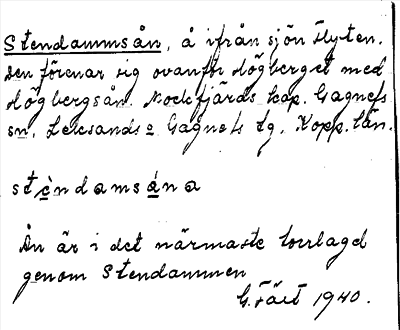 Stendammsån, å ifrån sjön Flyten.
Den förenar sig ovanför Högberget med
Högbergsån. Mockfjärds kap. Gagnefs
sn, Leksands o Gagnefs tg, Kopp. län.
stèndamsána
Ån är i det närmaste torrlagd
genom Stendammen
G. Täct 1940.